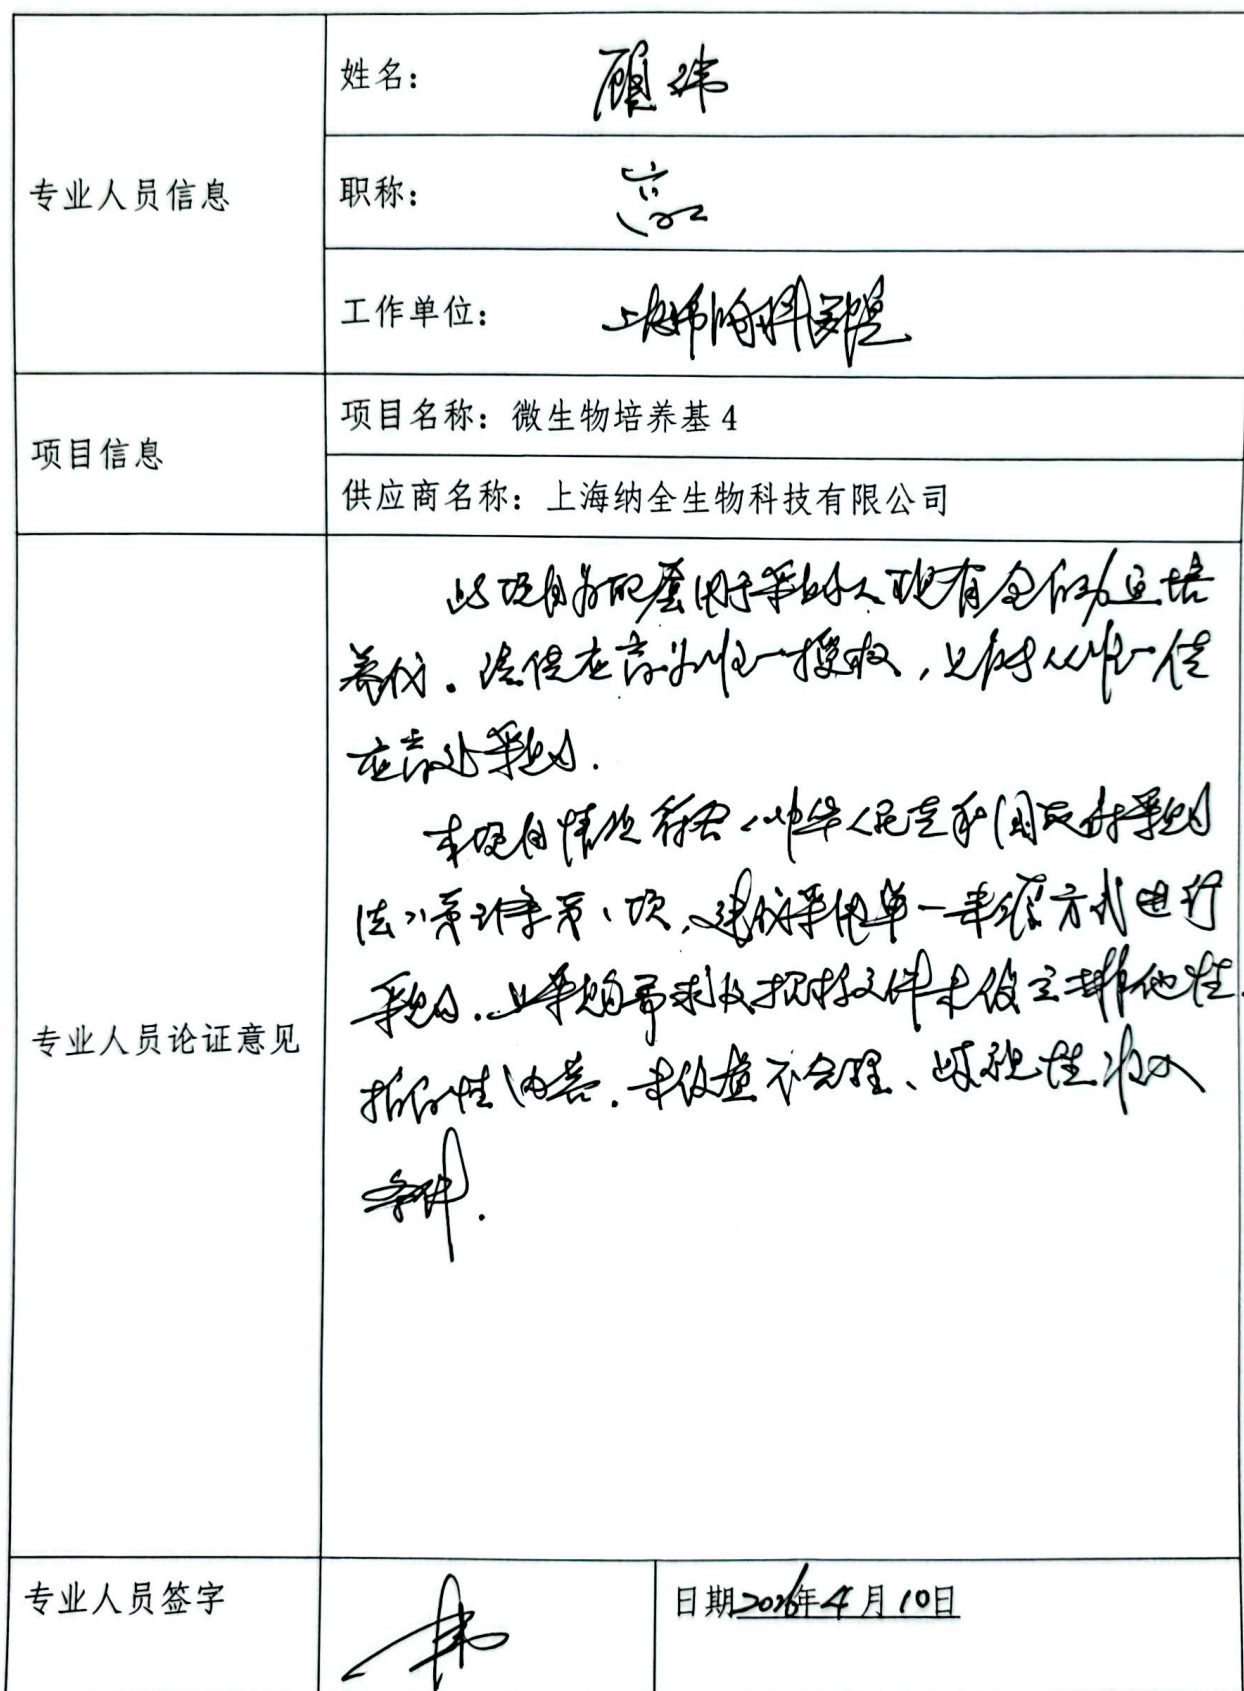 专业人员信息
姓名：顾玮
职称：高工
工作单位：上海市
项目信息
项目名称：微生物培养基 4
供应商名称：上海纳全生物科技有限公司
专业人员论证意见
此项目为配套用于采购人现有全自动血培
养仪。该供应商为唯一授权，只能从唯一供
应商处采购.
本项目情况符合《中华人民共和国政府采购
法》第 第 项，建议采用单一来源方式进行
采购. 采购需求及招标文件未设定排他性、
指向性内容. 未设置不合理、歧视性准入
条件.
专业人员签字
日期2026年4月10日